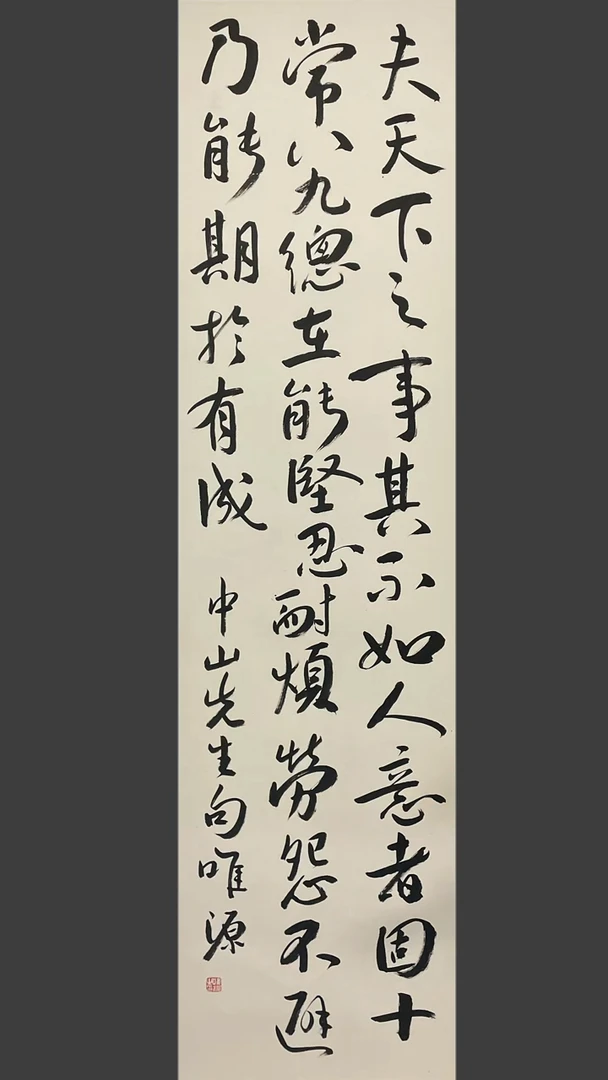 夫天下之事其不如人意者固十
常八九總在能堅忍耐煩勞怨不避
乃能期於有成
中山先生句唯源